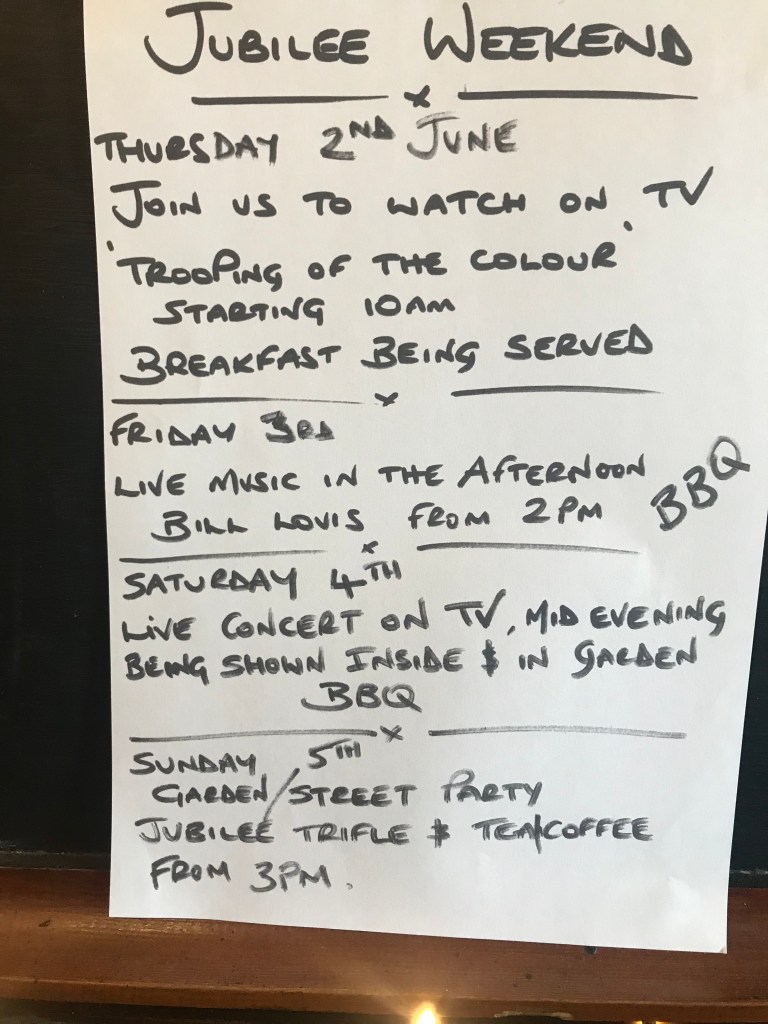 JUBILEE WEEKEND
x
THURSDAY 2ND JUNE
JOIN US TO WATCH ON TV
'TROOPING OF THE COLOUR'
STARTING 10AM
BREAKFAST BEING SERVED
x
FRIDAY 3RD
LIVE MUSIC IN THE AFTERNOON
BILL LOUIS FROM 2PM BBQ
x
SATURDAY 4TH
LIVE CONCERT ON TV, MID EVENING
BEING SHOWN INSIDE & IN GARDEN
BBQ
x
SUNDAY 5TH
GARDEN/STREET PARTY
JUBILEE TRIFLE & TEA/COFFEE
FROM 3PM.